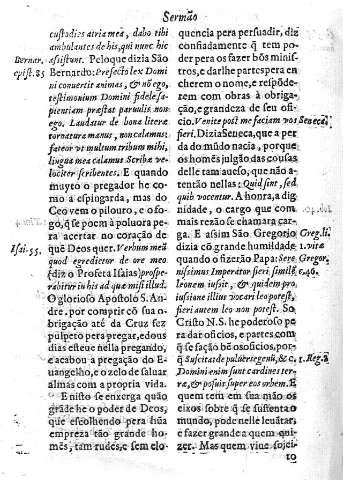 Sermão
custodies atria mea, dabo tibi
ambulantes de his, qui nunc hic
assistunt. Pelo que dizia São
Bernar.
epist. 85
Bernardo: Profectò lex Domi
ni convertit animas, & nõ ego,
testimonium Domini fidele sa-
pientiam præstat parvulis non
ego. Laudatur de bona litera
tornatura manus, non calamus:
fateor vt multum tribuã mihi,
lingua mea calamus Scribæ ve-
lociter scribentes. E quando
muyto o pregador he co
mo a espingarda, mas do
Ceo vem o pilouro, e o fo-
go, que se poem à poluora pe
ra acertar no coração de
quẽ Deos quer. Verbum meũ
Isai. 55.
quod egredietur de ore meo
(diz o Profeta Isaias) prospe-
rabitur in his ad quæ misi illud.
O glorioso Apostolo S. An-
dre. por comprir cõ sua o-
brigação atè da Cruz fez
pulpeto pera pregar, e dous
dias esteue nella pregando,
e acabou a pregação do E-
uangelho, e o zelo de saluar
almas com a propria vida.
E nisto se enxerga quão
grãde he o poder de Deos,
que escolhendo pera hũa
empreza tão grande ho-
mẽs, tam rudes, e sem elo-
quencia pera persuadir, diz
confiadamente q̃ tem po-
der pera os fazer bõs minis-
tros, e darlhe partes pera en
cherem o nome, e respõde-
rem com obras à obriga-
ção, e grandeza de seu ofi-
cio. Venite post me faciam vos
fieri. Dizia Seneca, que a per
Seneca.
da do mũdo nacia, porque
os homẽs julgão das cousas
delle tam auesso, que não a-
tentão nellas: Quid sint, sed
quid vocentur. A honra, a dig
nidade, o cargo que com
mais rezão se chamara car-
ga. E assim São Gregorio
Greg. li.
dizia cõ grande humildade
1. vita
quando o fizerão Papa: Sere
Gregor.
nissimus Imperator fieri simiã
c. 46.
leonem iussit, & quidem pro
iussione illius vocari leo potest,
fieri autem leo non potest. So
Cristo N.S. he poderoso pe
ra dar oficios, e partes com
q̃ se fação bõs os oficios, por-
q̃ Suscitat de puluere egenũ, &c,
1. Reg. 2
Domini enim sunt cardines ter-
ra, & posuit super eos orbem. E
quem tem em sua mão os
eixos sobre q̃ se sustenta o
mundo, pode nelle leuãtar,
e fazer grande a quem qui-
zer. Mas quem viue sojei-
to